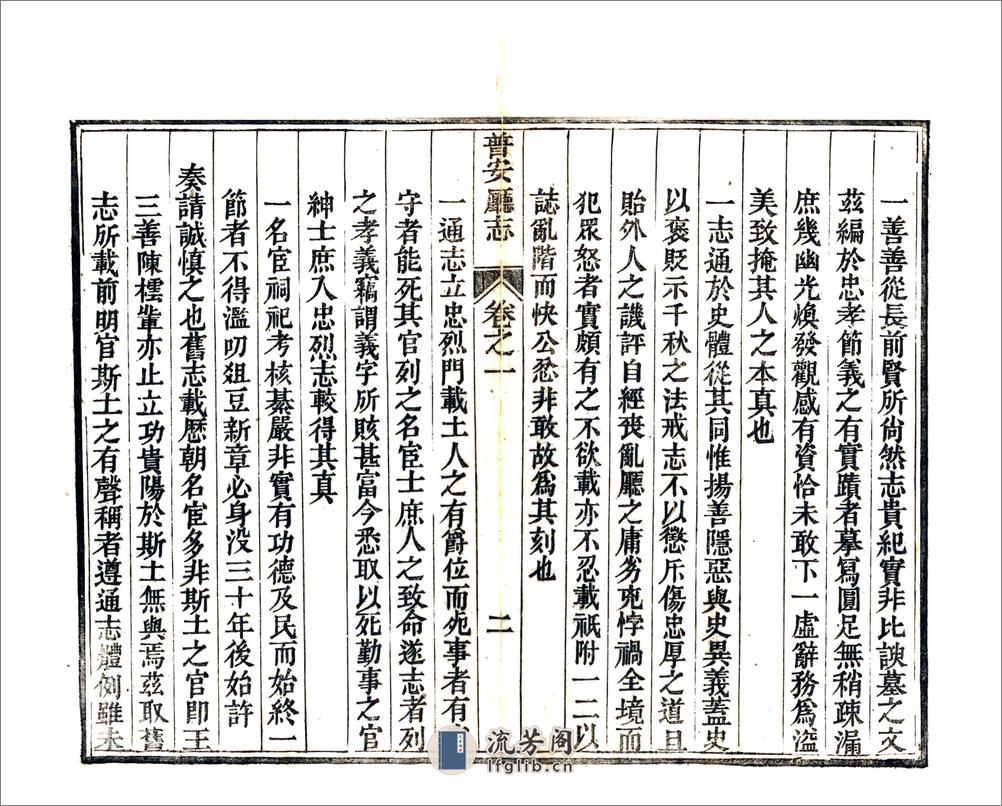 一善善從長前賢所尙然志貴紀實非比諛墓之文
茲編於忠孝節義之有實蹟者摹寫圓足無稍疎漏
庶幾幽光煥發觀感有資恰未敢下一虛辭務為溢
美致掩其人之本真也
一志通於史體從其同惟揚善隱惡與史異義蓋史
以褒貶示千秋之法戒志不以懲斥傷忠厚之道且
貽外人之譏評自經喪亂廳之庸劣兇悖禍全境而
犯眾怒者實頗有之不欲載亦不忍載祇附一二以
誌亂階而快公忿非敢故為其刻也
普安廳志 卷之一 二
一通志立忠烈門載土人之有爵位而死事者有
守者能死其官列之名宦士庶人之致命遂志者列
之孝義竊謂義字所賅甚富今悉取以死勤事之官
紳士庶入忠烈志較得其真
一名宦祠祀考核綦嚴非實有功德及民而始終一
節者不得濫叨俎豆新章必身没三十年後始許
奏請誠慎之也舊志載歷朝名宦多非斯土之官即王
三善陳櫄輩亦止立功貴陽於斯土無與焉茲取舊
志所載前明官斯土之有聲稱者遵通志體例雖未
流芳阁
lfglib.cn